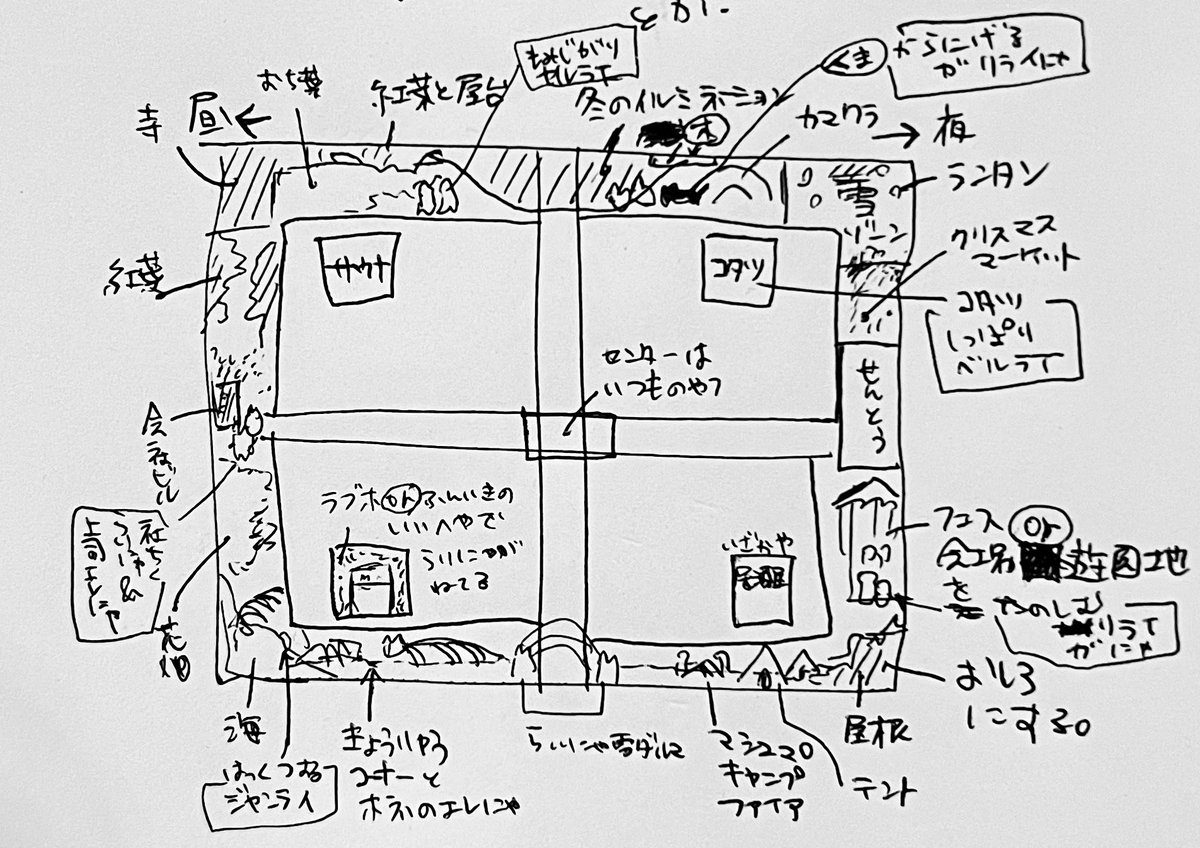 とか.
おち葉
紅葉と屋台
冬のイルミネーション
くま
からにげる
ガリライにゃ
カマクラ
寺
昼←
→夜
ランタン
雪
ゾーン
クリスマス
マーケット
サウナ
コタツ
コタツ
しっぽり
ベルライ
紅葉
センターは
いつものやつ
せんとう
会社ビル
社ちく
上司エレにゃ
花畑
ラブホかんふんいきの
いいへやで
らいにゃが
ねてる
いざかや
居酒屋
フェス or
遊園地
を
たのしむ
リライ
がにゃ
おしろ
にする。
屋根
海
はっくつする
ジャンライ
きょうりゅう
コーナーと
ホネのエレにゃ
らいにゃ雪ダルマ
マシュマロ
キャンプ
ファイア
テント